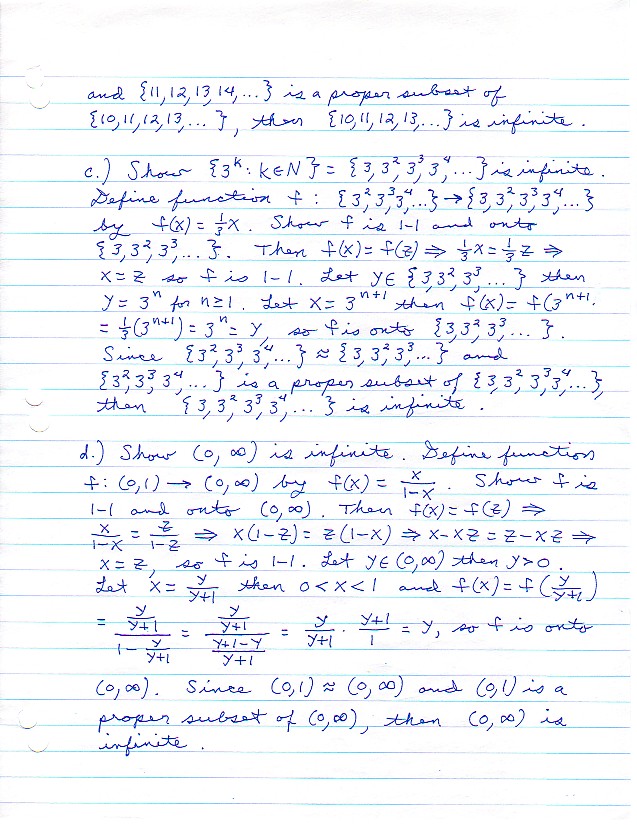 and {11,12,13,14,...} is a proper subset of
{10,11,12,13,...}, then {10,11,12,13,...} is infinite.
c.) Show {3^k : k∈N} = {3,3²,3³,3⁴,...} is infinite.
Define function f : {3²,3³,3⁴,...} → {3,3²,3³,3⁴,...}
by f(x) = 1/3 x. Show f is 1-1 and onto
{3,3²,3³,...}. Then f(x) = f(z) ⇒ 1/3 x = 1/3 z ⇒
x = z so f is 1-1. Let y∈ {3,3²,3³,...} then
y = 3^n for n≥1. Let x = 3^(n+1) then f(x) = f(3^(n+1).
= 1/3(3^(n+1)) = 3^n = y, so f is onto {3,3²,3³,...}.
Since {3²,3³,3⁴,...} ≈ {3,3²,3³,...} and
{3²,3³,3⁴,...} is a proper subset of {3,3²,3³,3⁴,...},
then {3,3²,3³,3⁴,...} is infinite.
d.) Show (0,∞) is infinite. Define function
f : (0,1) → (0,∞) by f(x) = x/(1-x). Show f is
1-1 and onto (0,∞). Then f(x) = f(z) ⇒
x/(1-x) = z/(1-z) ⇒ x(1-z) = z(1-x) ⇒ x-xz = z-xz ⇒
x = z, so f is 1-1. Let y∈(0,∞) then y>0.
Let x = y/(y+1) then 0<x<1 and f(x) = f(y/(y+1))
= (y/(y+1))/(1 - y/(y+1)) = (y/(y+1))/((y+1-y)/(y+1)) = y/(y+1) · (y+1)/1 = y, so f is onto
(0,∞). Since (0,1) ≈ (0,∞) and (0,1) is a
proper subset of (0,∞), then (0,∞) is
infinite.